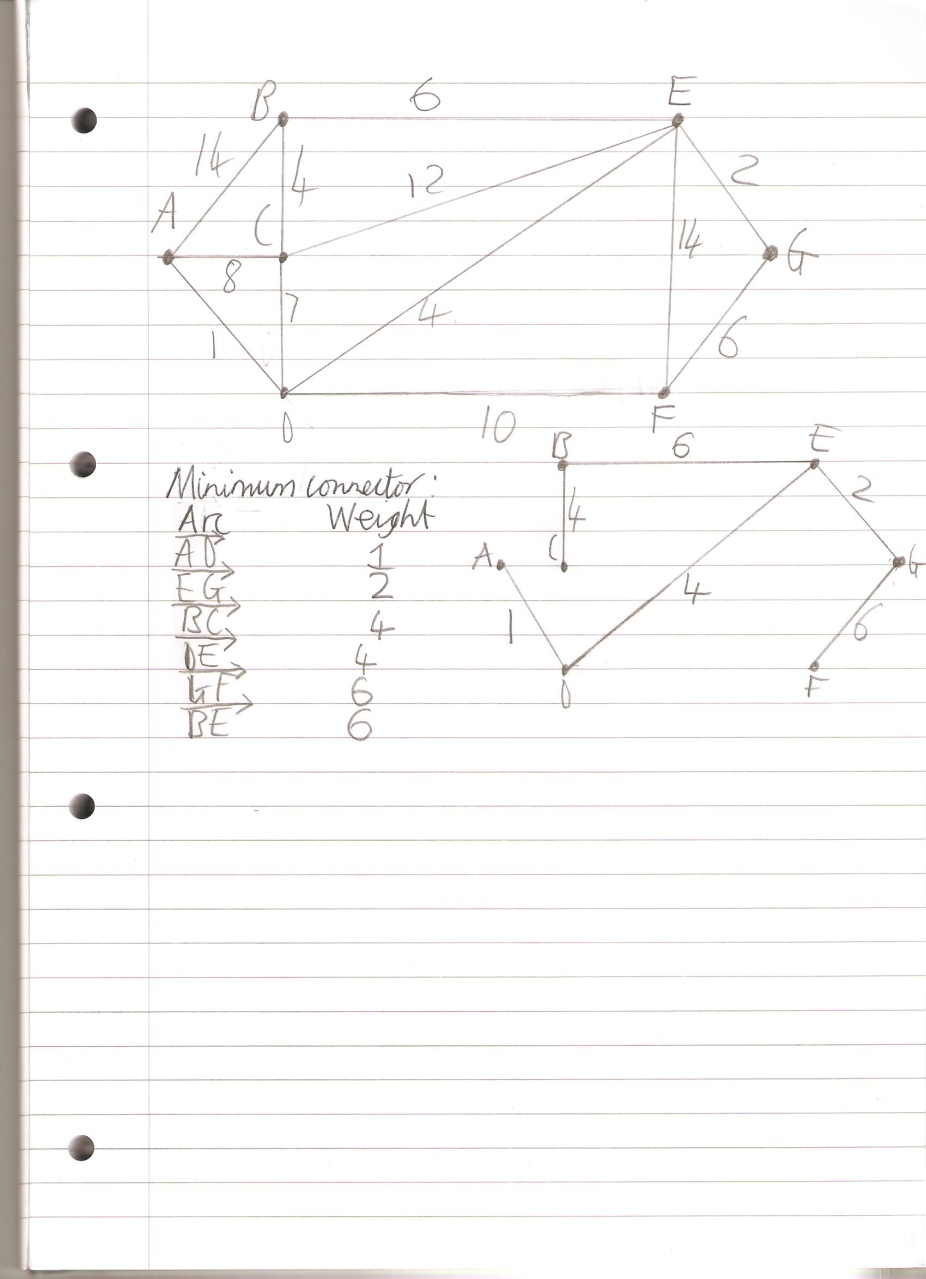 B 6 E
14 4 12 2
A C 14 G
8 7 4
1 6
D 10 F
B 6 E
Minimum connector:
Arc Weight
AD 1
EG 2
BC 4
DE 4
GF 6
BE 6
4 2
A C G
1 4 6
D F